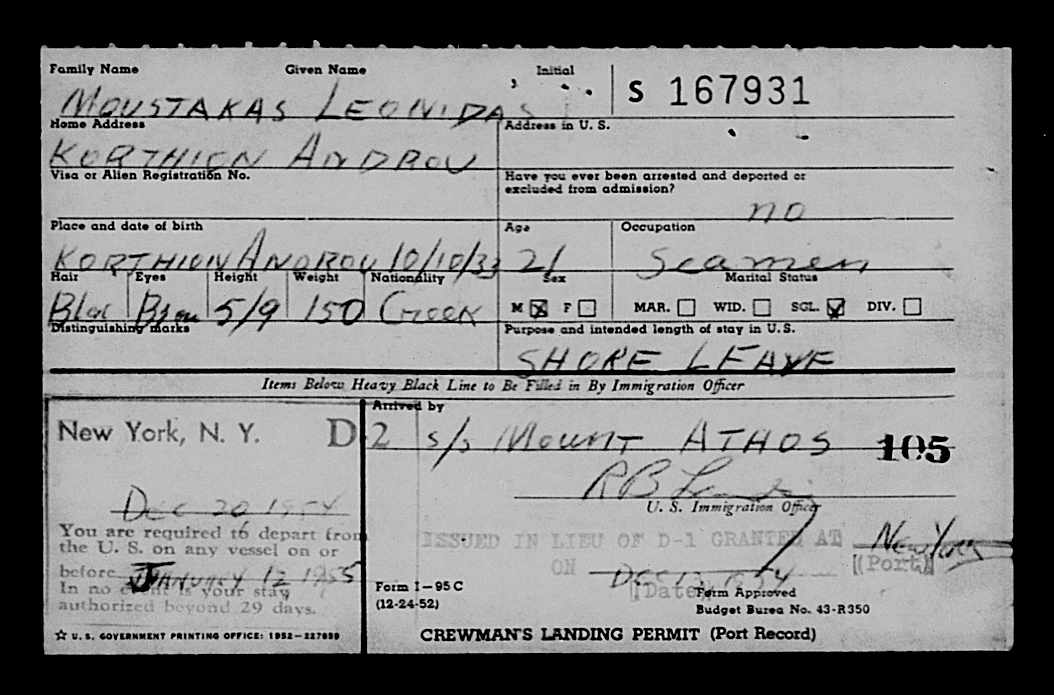 Family Name Given Name Initial
S 167931
MOUSTAKAS LEONIDAS
Home Address Address in U. S.
KORTHION ANDROU
Visa or Alien Registration No. Have you ever been arrested and deported or
excluded from admission?
no
Place and date of birth Age Occupation
KORTHION ANDROU 10/10/33 21 Seamen
Hair Eyes Height Weight Nationality Sex Marital Status
Blac Brou 5/9 150 Greek M ☒ F ☐ MAR. ☐ WID. ☐ SGL. ☑ DIV. ☐
Distinguishing marks Purpose and intended length of stay in U. S.
SHORE LEAVE
Items Below Heavy Black Line to Be Filled in By Immigration Officer
Arrived by
New York, N. Y. D 2 s/s MOUNT ATHOS 105
U. S. Immigration Officer
DEC 20 1954
You are required to depart from
the U. S. on any vessel on or
before JANUARY 12 1955
In no event is your stay
authorized beyond 29 days.
ISSUED IN LIEU OF D-1 GRANTED AT New York
(Port)
ON DEC 13 1954
(Date)
Form I-95 C
(12-24-52)
Form Approved
Budget Burea No. 43-R350
☆ U. S. GOVERNMENT PRINTING OFFICE: 1952-227989
CREWMAN'S LANDING PERMIT (Port Record)